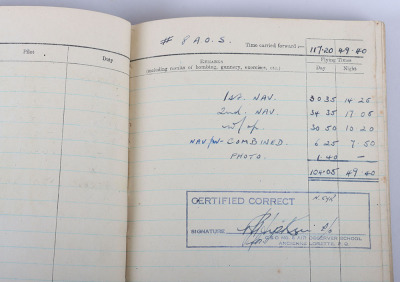 # P A O S.
Time carried forward :—
117·20 49·40
Pilot
Duty
REMARKS
(including results of bombing, gunnery, exercises, etc.)
Flying Times
Day Night
1st. NAV. 30 35 14 25
2nd. NAV. 34 35 17 05
w/op. 30 50 10 20
NAV/W COMBINED. 6 25 7 50
PHOTO. 1·40 —
104·05 49·40
CERTIFIED CORRECT
SIGNATURE
AIR OBSERVER SCHOOL
ANCIENNE LORETTE, P. Q.